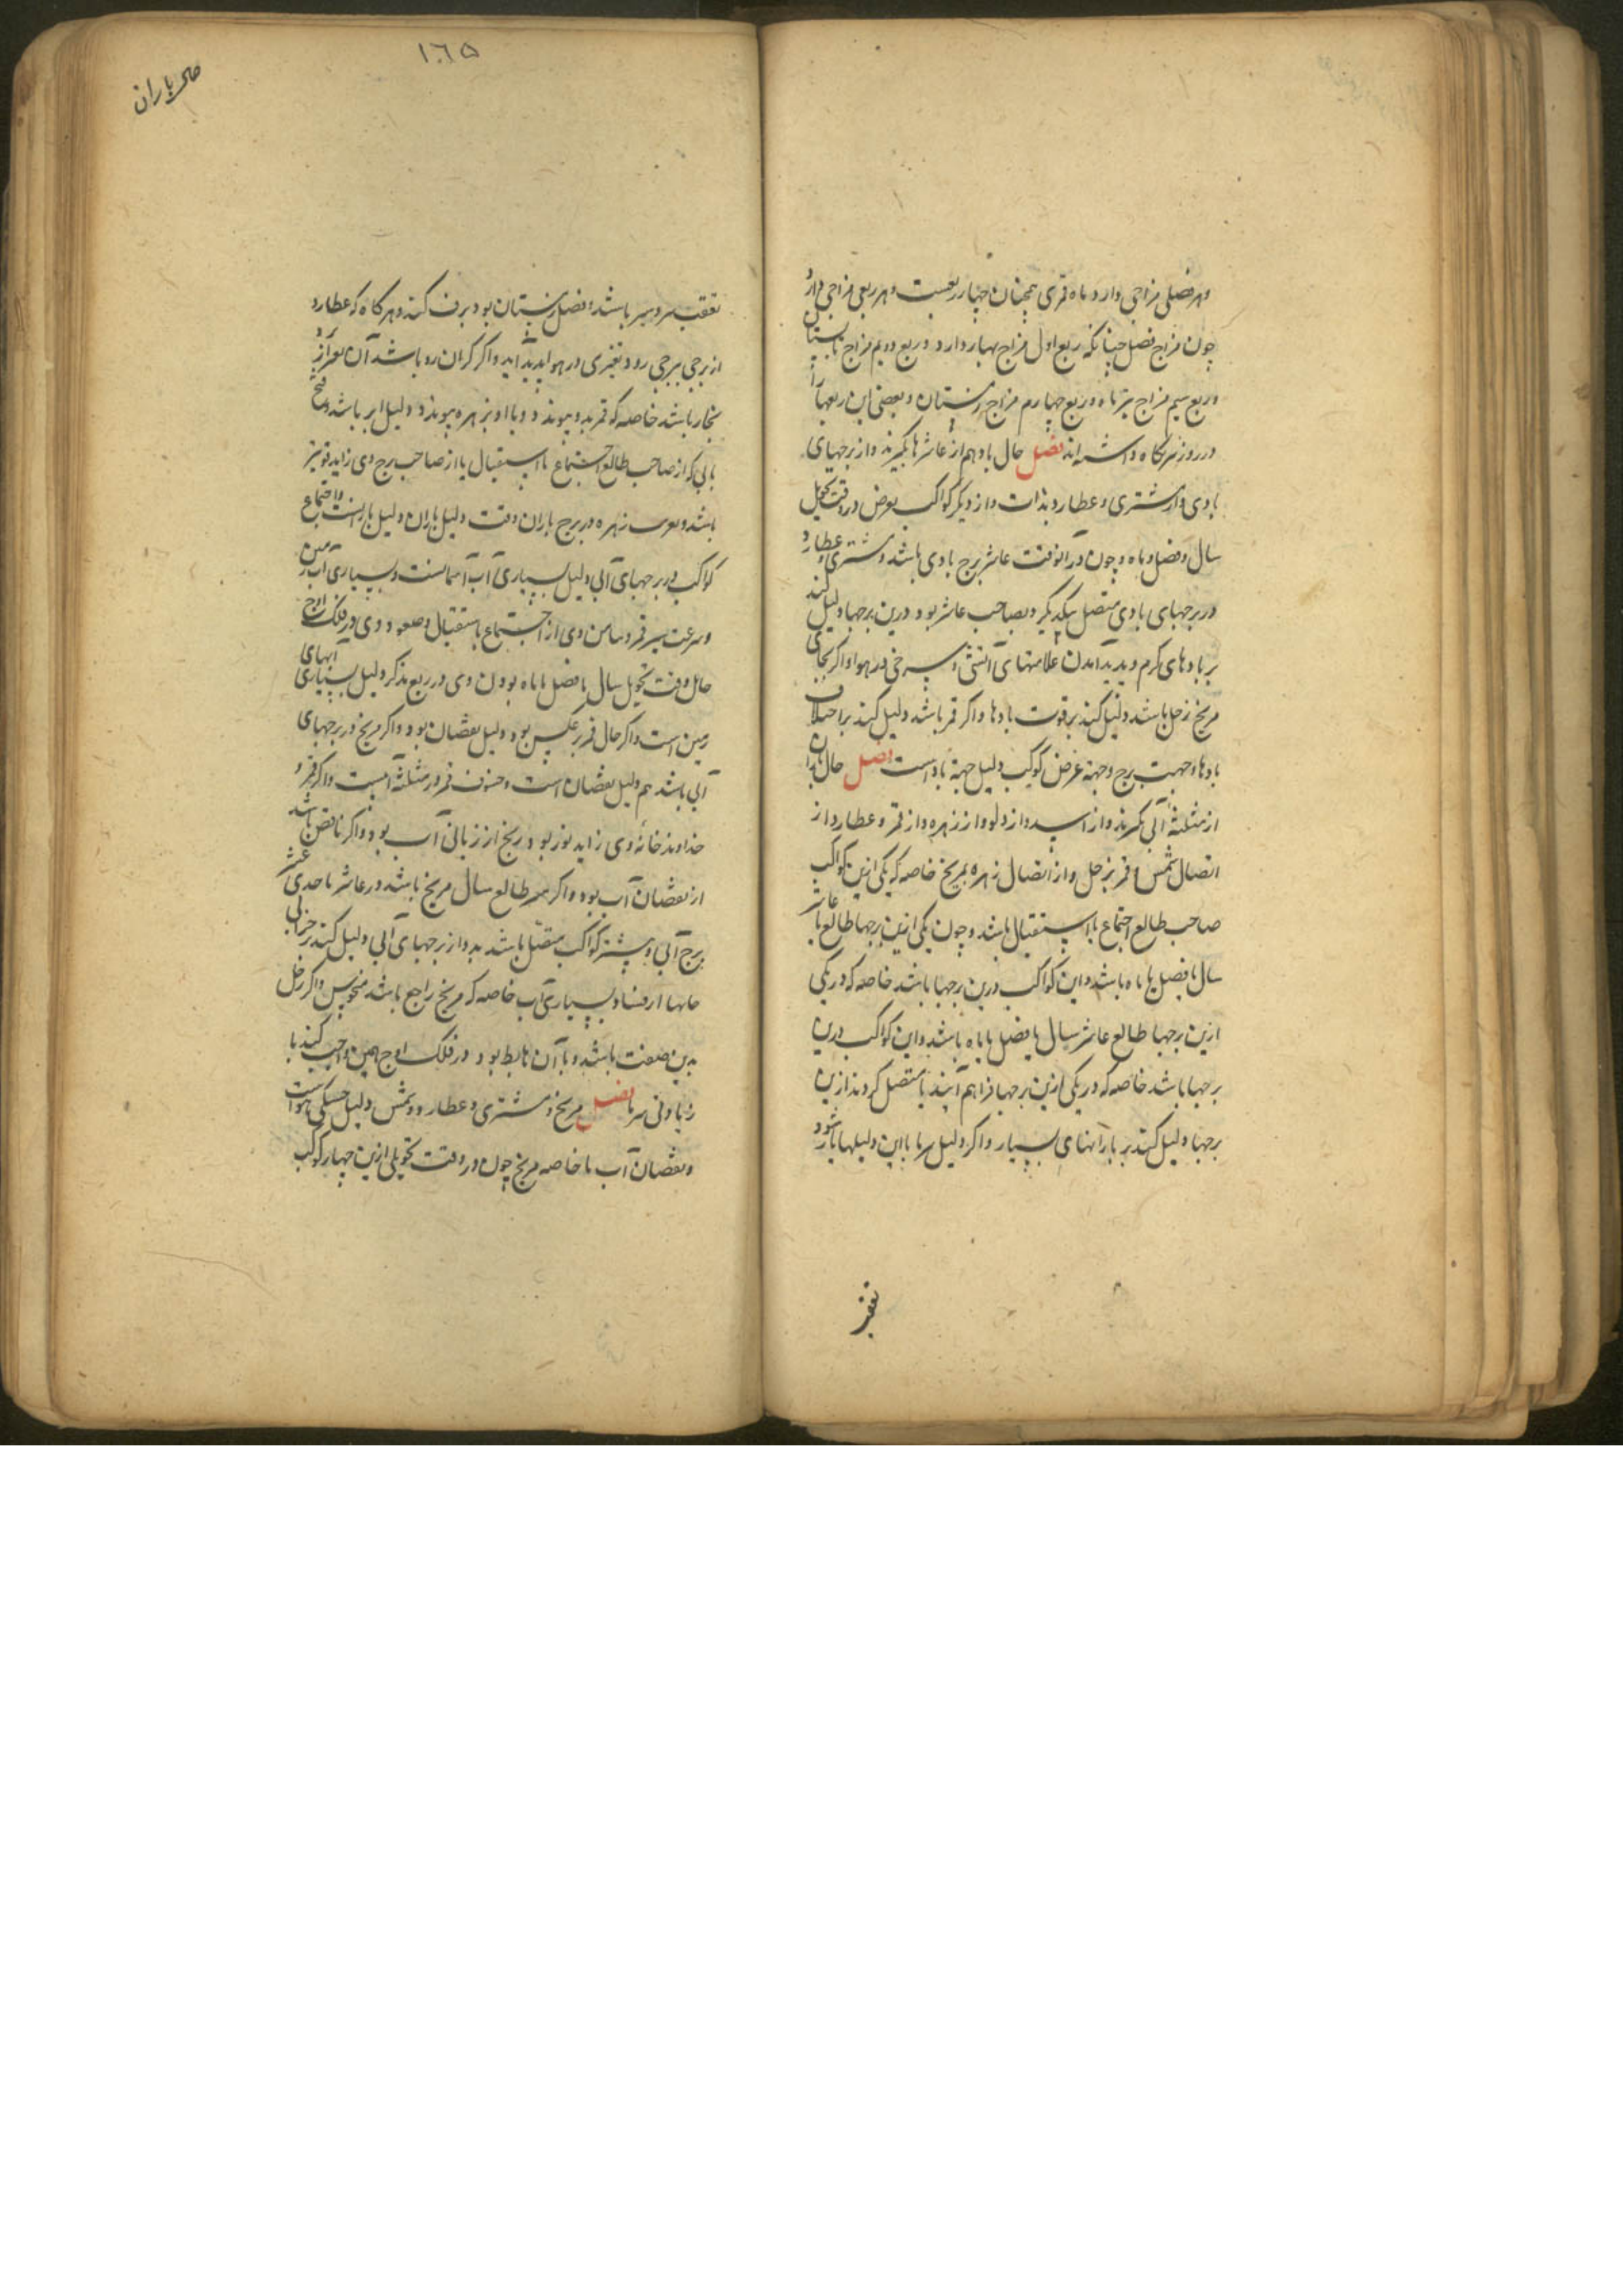 و هر فصلی مزاجی دارد و ماه قمری همچنان چهار ربعست و هر ربعی مزاجی دارد
چون مزاج فصل چنانکه ربع اول مزاج بهار دارد و ربع دویم مزاج تابستان
و ربع سیم مزاج تیر ماه و ربع چهارم مزاج زمستان و بعضی این ربعها را
در روز نگاه داشته اند فصل حال باد هم از عاشرها بگیرند و از برجهای
بادی و از مشتری و عطارد بذات و از دیگر کواکب بعرض در وقت تحویل
سال و فصل و ماه و چون در آنوقت عاشر برج بادی باشد و مشتری و عطارد
در برجهای بادی متصل بیکدیگر و بصاحب عاشر بود درین برجها دلیل کند
بر بادهای گرم و پدید آمدن علامتهای آتشی و سرخی در هوا و اگر بجای
مریخ زحل باشد دلیل کند بر قوت بادها و اگر قمر باشد دلیل کند بر اختلاف
بادها و جهت برج و جهة عرض کوکب دلیل جهة باد است فصل حال باران
از مثلثهٔ آبی گیرند و از اسد و از دلو و از زهره و از قمر و عطارد و از
اتصال شمس و قمر بزحل و از اتصال زهره بمریخ خاصه که یکی ازین کواکب
صاحب طالع اجتماع یا استقبال باشد و چون یکی ازین برجها طالع یا عاشر
سال یا فصل یا ماه باشد و این کواکب درین برجها باشند خاصه که در یکی
ازین برجها طالع عاشر سال یا فصل یا ماه باشد و این کواکب درین
برجها باشد خاصه که در یکی ازین برجها فراهم آیند یا متصل گردند ازین
برجها دلیل کند بر بارانهای بسیار و اگر دلیل سرما با این دلیلها یار شود
١٠٦٥
باران
باشد و فصل زمستان بود برف کند و هرگاه که عطارد
از برجی ببرجی رود تغیری در هوا پدید آید و اگر گران رو باشد آن تغیر از
بخار باشد خاصه که قمر بدو پیوندد و یا او بزهره پیوندد دلیل ابر باشد و فتح
بابی که از صاحب طالع اجتماع یا استقبال یا از صاحب برج وی زاید قویتر
باشد و زهره در برج باران وقت دلیل باران دلیل بارانست و اجتماع
کواکب در برجهای آبی دلیل بسیاری آب آسمانست و بسیاری آب زمین
و سرعت سیر قمر و وی از اجتماع یا استقبال و صعود وی در فلک اوج
حامل وقت تحویل سال یا فصل یا ماه بودن وی در ربع مذکر دلیل بسیاری آبهای
زمین است و اگر حال قمر بر عکس بود دلیل نقصان بود و اگر مریخ در برجهای
آبی باشد هم دلیل نقصان است و خسوف قمر در مثلثه آبست و اگر قمر و
خداوند خانه وی زاید نور بود رنج از زیانی آب بود و اگر ناقص باشد
از نقصان آب بود و اگر طالع سال مریخ باشد در عاشر یا حدی عشر
برج آبی و بیشتر کواکب متصل باشد بدو از برجهای آبی دلیل کند بر خرابی
جایها از فساد و بسیاری آب خاصه که مریخ راجع باشد منحوس و اگر زحل
بدین صفت باشد و با آن هابط بود در فلک اوج همین واجب کند با
زیادتی سرما فصل مریخ و مشتری و عطارد و شمس دلیل خشکی هواست
و نقصان آب ها خاصه مریخ چون در وقت تحویلی ازین چهار کوکب